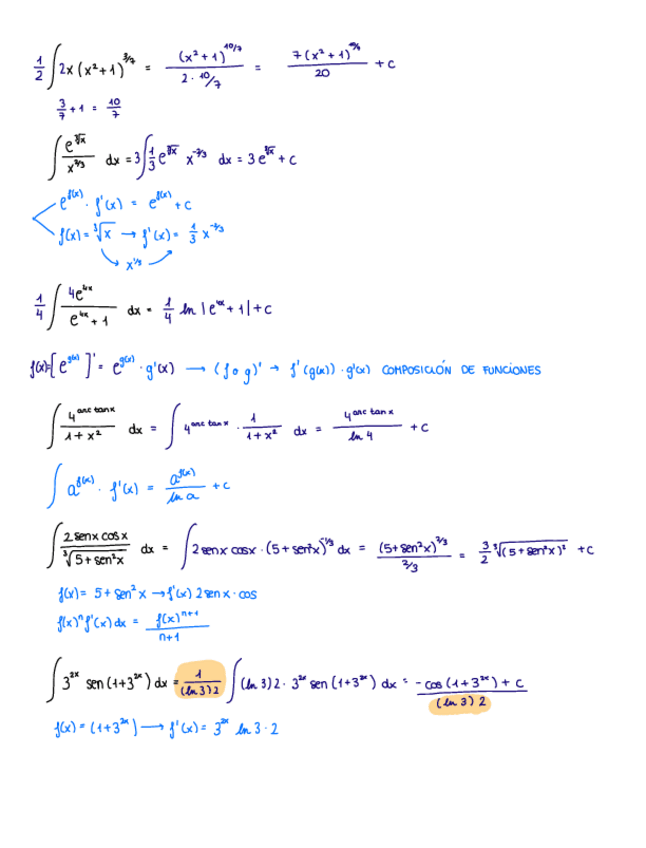 1/2 ∫ 2x (x² + 1)^(3/7) = (x² + 1)^(10/7) / (2 · 10/7) = 7 (x² + 1)^(10/7) / 20 + c
3/7 + 1 = 10/7
∫ e^(∛x) / x^(2/3) dx = 3 ∫ 1/3 e^(∛x) x^(-2/3) dx = 3 e^(∛x) + c
e^(f(x)) · f'(x) = e^(f(x)) + c
f(x) = ∛x → f'(x) = 1/3 x^(-2/3)
x^(1/3)
1/4 ∫ 4e^(4x) / (e^(4x) + 1) dx = 1/4 ln |e^(4x) + 1| + c
f(x) = [e^(g(x))]' = e^(g(x)) · g'(x) → (f o g)' → f'(g(x)) · g'(x) COMPOSICIÓN DE FUNCIONES
∫ 4^(arc tan x) / (1 + x²) dx = ∫ 4^(arc tan x) · 1 / (1 + x²) dx = 4^(arc tan x) / ln 4 + c
∫ a^(f(x)) · f'(x) = a^(f(x)) / ln a + c
∫ 2 sen x cos x / ∛(5 + sen²x) dx = ∫ 2 sen x cos x · (5 + sen²x)^(-1/3) dx = (5 + sen²x)^(2/3) / (2/3) = 3/2 ∛((5 + sen²x)²) + c
f(x) = 5 + sen² x → f'(x) 2 sen x · cos
f(x)^n f'(x) dx = f(x)^(n+1) / (n+1)
∫ 3^(2x) sen (1 + 3^(2x)) dx = 1 / ((ln 3) 2) ∫ (ln 3) 2 · 3^(2x) sen (1 + 3^(2x)) dx = (- cos (1 + 3^(2x)) + c) / ((ln 3) 2)
f(x) = (1 + 3^(2x)) → f'(x) = 3^(2x) ln 3 · 2